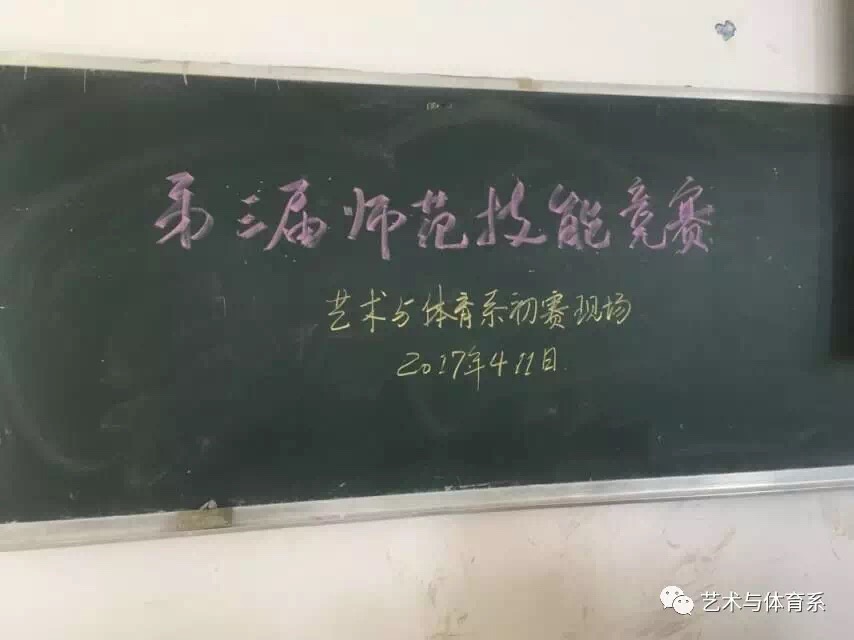 第三届师范技能竞赛
艺术与体育系初赛现场
2017年4 11日
艺术与体育系